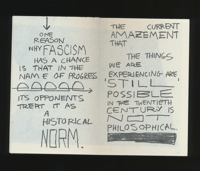 ONE
REASON
WHY FASCISM
HAS A CHANCE
IS THAT IN THE
NAME OF PROGRESS
ITS OPPONENTS
TREAT IT AS
A
HISTORICAL
NORM.
THE CURRENT
AMAZEMENT
THAT
THE THINGS
WE ARE
EXPERIENCING ARE
'STILL'
POSSIBLE
IN THE TWENTIETH
CENTURY IS
NOT
PHILOSOPHICAL.